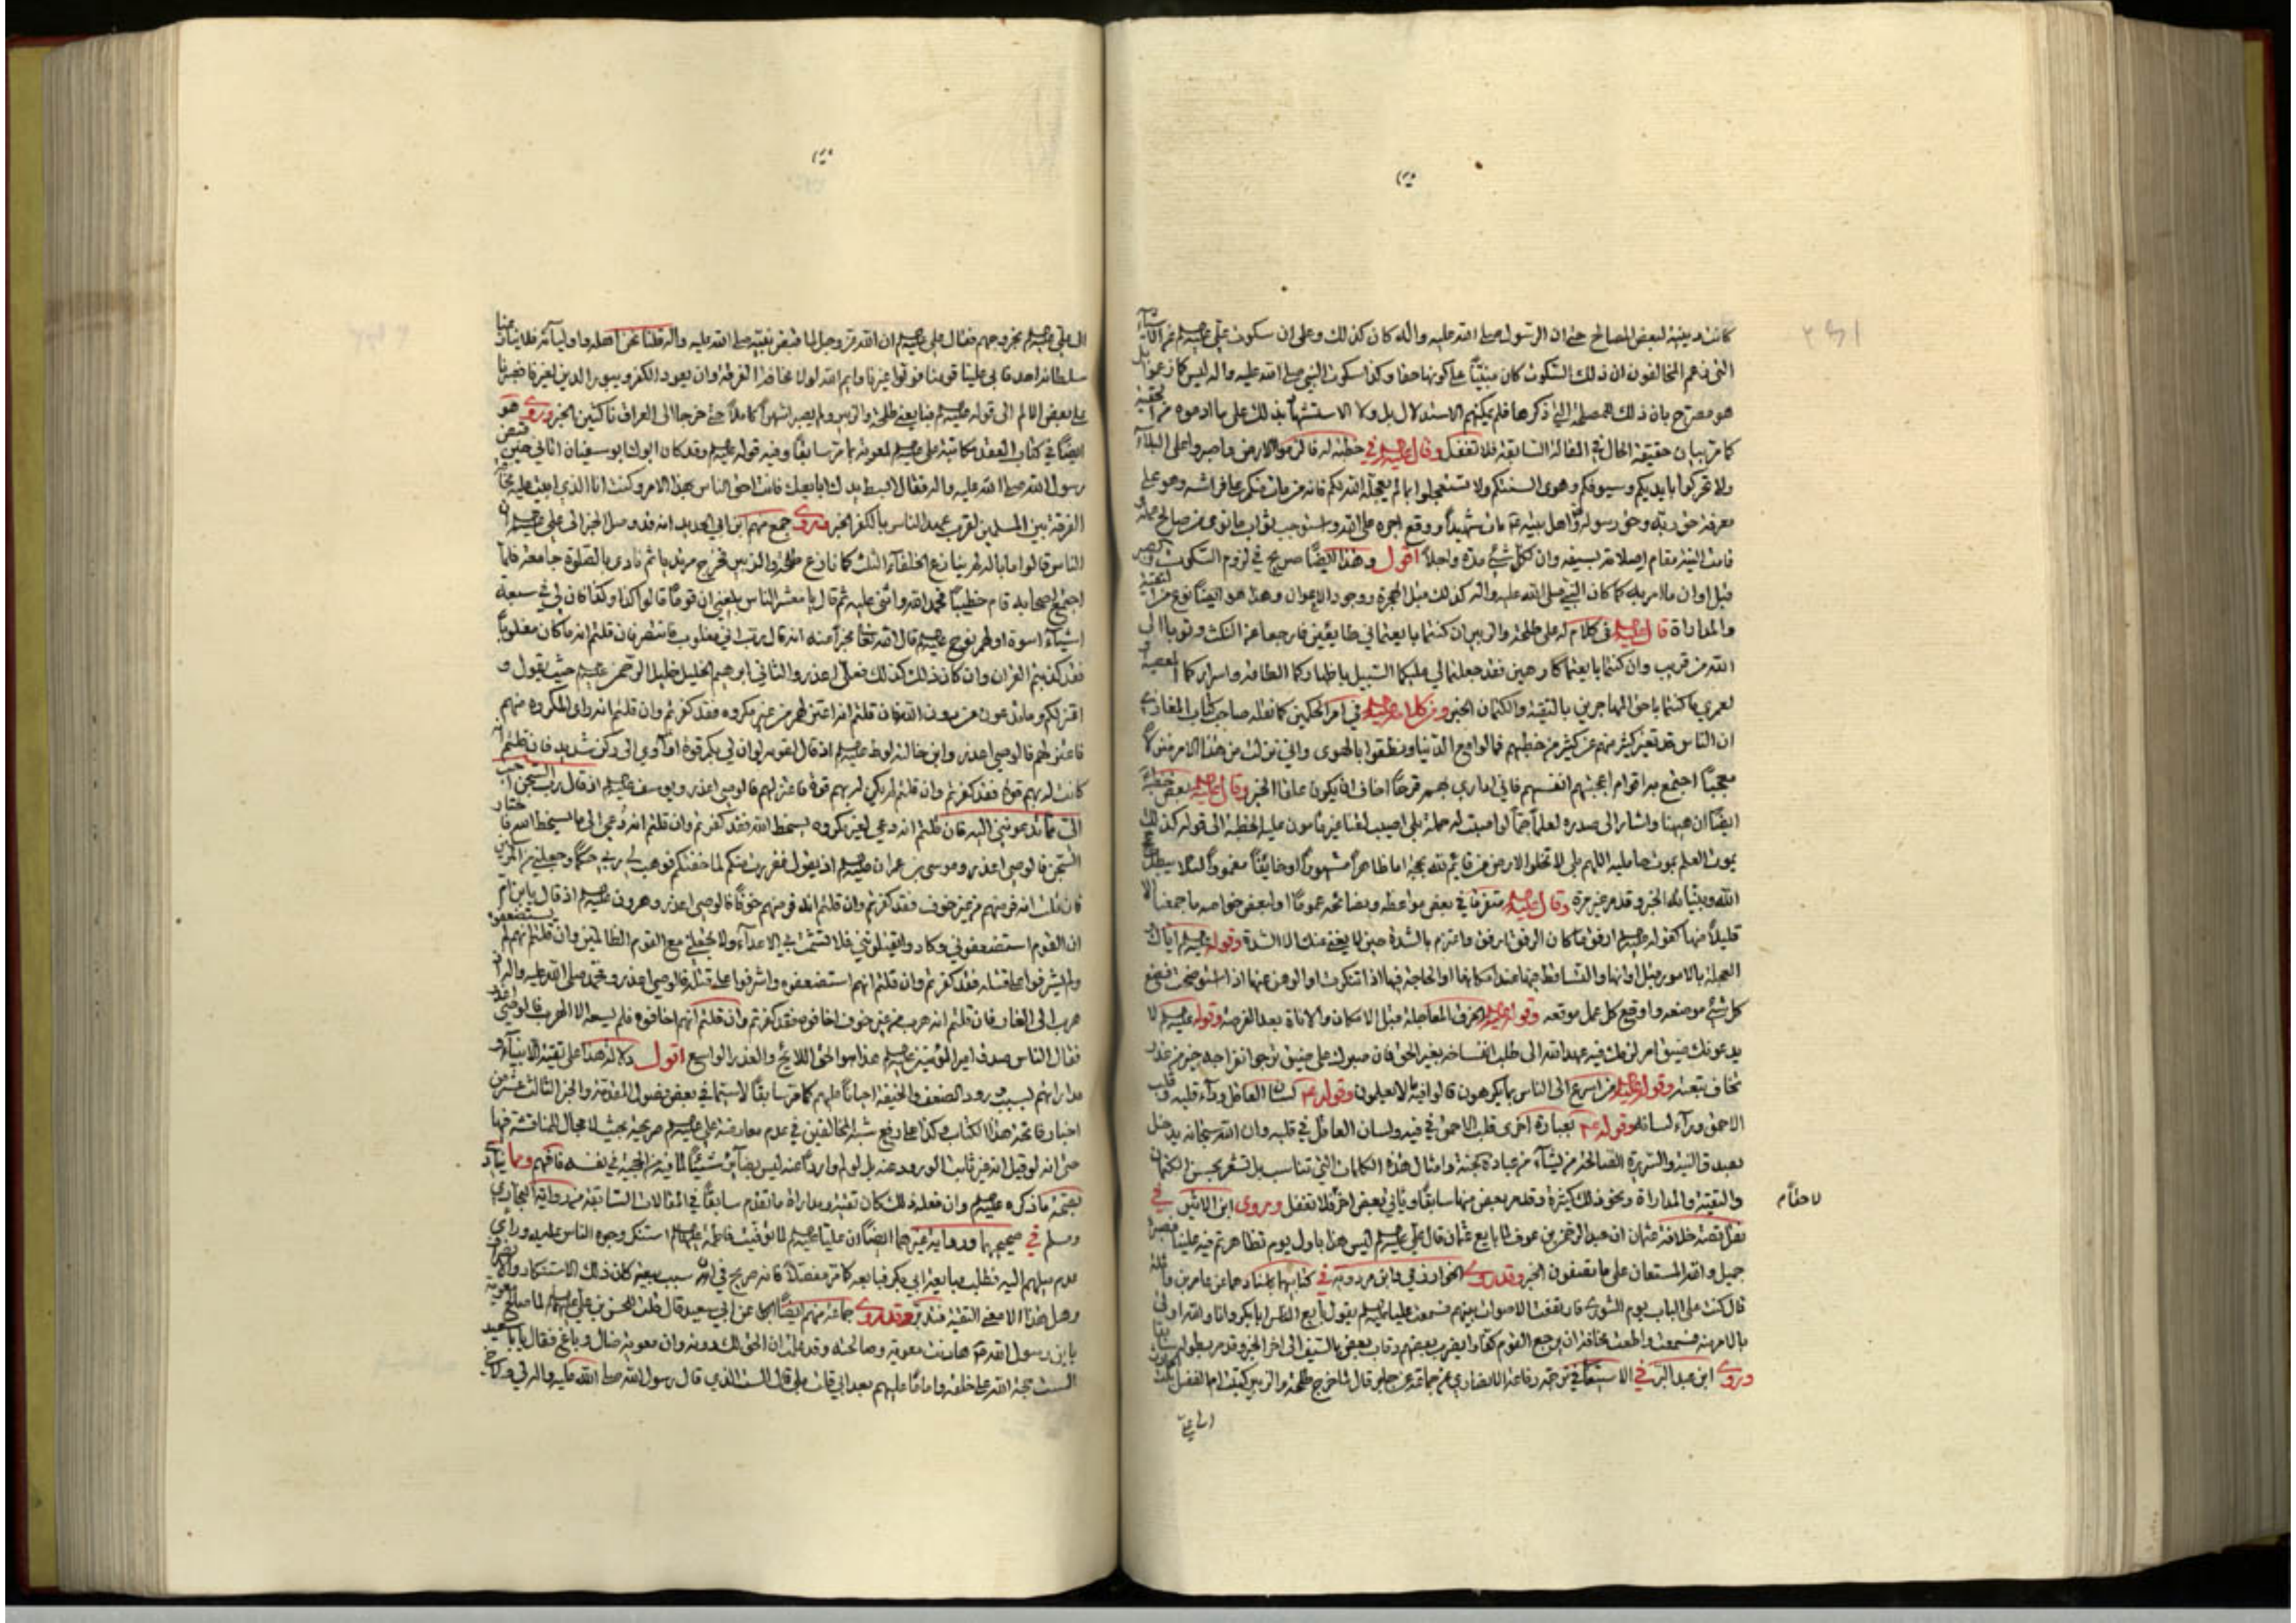 كانت مبنية لبعض المصالح حتى ان الرسول صلى الله عليه واله كان كذلك وعلى ان سكوت علي
التي زعم المخالفون ان ذلك السكوت كان مبنيا على كونها حقا وكذا سكوت النبي صلى الله عليه واله ليس كما زعموا بل
هو مصرح بان ذلك للمصلحة التي ذكرها فلم يمكنهم الاستدلال بل ولا الاستشهاد بذلك على ما ادعوه من
كما مر بيان حقيقة الحال في المقالة السابقة فلا تغفل وقال في خطبة له الزموا الارض واصبروا على البلاء
ولا تحركوا بايديكم وسيوفكم وهوى السنتكم ولا تستعجلوا بما لم يعجله الله لكم فانه من مات منكم على فراشه وهو على
معرفة حق ربه وحق رسوله واهل بيته مات شهيدا ووقع اجره على الله واستوجب ثواب ما نوى من صالح عمله
قامت النية مقام اصلاته لسيفه وان لكل شيء مدة واجلا اقول وهذا ايضا صريح في لزوم السكوت
قبل اوان الامر به كما كان النبي صلى الله عليه واله كذلك قبل الهجرة ووجود الاعوان وهذا هو ايضا نوع من التقية
والمداراة قال في كلام له على طلحة والزبير ان كنتما بايعتماني طايعين فارجعا عن النكث وتوبا الى
الله من قريب وان كنتما بايعتما كارهين فقد جعلتما لي عليكما السبيل باظهاركما الطاعة واسراركما المعصية
لعمري ما كنتما باحق المهاجرين بالتقية والكتمان الخبر ومن كلامه في امر الحكمين كما نقله صاحب كتاب المغازي
ان الناس قد تغير كثير منهم عن كثير من حظهم فمالوا مع الدنيا ونطقوا بالهوى واني نزلت من هذا الامر منزلا
معجبا اجتمع به اقوام اعجبتهم انفسهم فاني اداري منهم قرحا اخاف ان يكون علقا الخبر وقال
ايضا ان ههنا واشار الى صدره لعلما جما لو اصبت له حملة بلى اصيب لقنا غير مامون عليه الخطبة الى قوله كذلك
يموت العلم بموت حامليه اللهم بلى لا تخلو الارض من قائم لله بحجة اما ظاهرا مشهورا او خائفا مغمورا لئلا تبطل
الله وبيناته الخبر وقد مر غير مرة وقال متفرقا في بعض مواعظه ونصائحه عموما او لبعض خواصه
قليلا منها كقوله ارفق ما كان الرفق ارفق واعتزم بالشدة حين لا يغني عنك الا الشدة وقوله اياك
العجلة بالامور قبل اوانها والتساقط فيها عند امكانها او اللجاجة فيها اذا تنكرت او الوهن عنها اذا استوضحت فضع
كل شيء موضعه واوقع كل عمل موقعه وقوله من الخرق المعاجلة قبل الامكان والاناة بعد الفرصة وقوله لا
يدعونك ضيق امر لزمك فيه عهد الله الى طلب انفساخه بغير الحق فان صبرك على ضيق ترجو انفراجه خير من غدر
تخاف تبعته وقوله من اسرع الى الناس بما يكرهون قالوا فيه ما لا يعلمون وقوله لسان العاقل وراء قلبه وقلب
الاحمق وراء لسانه وقوله بعبارة اخرى قلب الاحمق في فيه ولسان العاقل في قلبه وان الله سبحانه يدخل
بصدق النية والسريرة الصالحة من يشاء من عباده الجنة وامثال هذه الكلمات التي تناسب بل تشعر بحسن الكتمان
والتقية والمداراة ونحو ذلك كثيرة وقد مر بعض منها سابقا وياتي بعض اخر فلا تغفل وروى ابن الاثير في
نقل قصة خلافة عثمان ان عبد الرحمن بن عوف لما بايع عثمان قال علي ليس هذا باول يوم تظاهرتم فيه علينا فصبر
جميل والله المستعان على ما تصفون الخبر وقد روى الخوارزمي وابن مردويه في كتابيهما باسنادهما عن عامر بن واثلة
قال كنت على الباب يوم الشورى فارتفعت الاصوات بينهم فسمعت عليا يقول بايع الناس ابا بكر وانا والله اولى
بالامر منه فسمعت واطعت مخافة ان يرجع القوم كفارا يضرب بعضهم رقاب بعض بالسيف الى اخر الخبر وقد مر بطوله
وروى ابن عبد البر في الاستيعاب في ترجمة رفاعة الانصاري عن جماعة قال لما خرج طلحة والزبير كتبت ام الفضل بنت
الى علي
الى علي بخروجهم فقال علي ان الله عز وجل لما قبض نبيه صلى الله عليه واله قلنا نحن اهله واولياؤه فلا ينازعنا
سلطانه احد فابى علينا قومنا فولوا غيرنا وايم الله لولا مخافة الفرقة وان يعود الكفر ويبور الدين لغيرنا فصبرنا
على بعض الالم الى قوله فبايعني طلحة والزبير ولم يصبرا شهرا كاملا حتى خرجا الى العراق ناكثين الخبر وروى هو
ايضا في كتاب العقد مكاتبة علي لمعوية بما مر سابقا وفيه قوله وقد كان ابوك ابو سفيان اتاني حين قبض
رسول الله صلى الله عليه واله فقال ابسط يدك ابايعك فانت احق الناس بهذا الامر وكنت انا الذي ابيت عليه مخافة
الفرقة بين المسلمين لقرب عهد الناس بالكفر الخبر وروى جمع منهم ابن ابي الحديد انه قد وصل الخبر الى علي ان
الناس قالوا ما باله لم ينازع الخلفاء الثلث كما نازع طلحة والزبير فخرج مرتديا ثم نادى بالصلوة جامعة فلما
اجتمع اصحابه قام خطيبا فحمد الله واثنى عليه ثم قال يا معشر الناس بلغني ان قوما قالوا كذا وكذا فان لي في سبعة
انبياء اسوة اولهم نوح قال الله تعالى مخبرا عنه انه قال رب اني مغلوب فانتصر فان قلتم انه ما كان مغلوبا
فقد كفرتم القران وان كان ذلك كذلك فعلي اعذر والثاني ابرهيم الخليل خليل الرحمن حيث يقول و
اعتزلكم وما تدعون من دون الله فان قلتم انه اعتزلهم من غير مكروه فقد كفرتم وان قلتم انه راى المكروه منهم
فاعتزلهم فالوصي اعذر وابن خالته لوط اذ قال لقومه لو ان لي بكم قوة او اوي الى ركن شديد فان قلتم انه
كانت له بهم قوة فقد كفرتم وان قلتم لم يكن له بهم قوة فاعتزلهم فالوصي اعذر ويوسف اذ قال رب السجن احب
الي مما يدعونني اليه فان قلتم انه دعي لغير مكروه يسخط الله فقد كفرتم وان قلتم انه دعي الى ما يسخط الله فاختار
السجن فالوصي اعذر وموسى بن عمران اذ يقول ففررت منكم لما خفتكم فوهب لي ربي حكما وجعلني من المرسلين
فان قلتم انه فر منهم من غير خوف فقد كفرتم وان قلتم انه فر منهم خوفا فالوصي اعذر وهرون اذ قال يا بن ام
ان القوم استضعفوني وكادوا يقتلونني فلا تشمت بي الاعداء ولا تجعلني مع القوم الظالمين وان قلتم انهم لم يستضعفوه
ولم يشرفوا على قتله فقد كفرتم وان قلتم انهم استضعفوه واشرفوا على قتله فالوصي اعذر ومحمد صلى الله عليه واله
هرب الى الغار فان قلتم انه هرب من غير خوف اخافوه فقد كفرتم وان قلتم انهم اخافوه فلم يسعه الا الهرب فالوصي اعذر
فقال الناس صدق امير المؤمنين هذا هو الحق اللايح والعذر الواضح اقول دلالة هذا على تقية الانبياء و
مداراتهم بسبب ورود الضعف والخيفة احيانا عليهم كما مر سابقا لا سيما في بعض فصول المقدمة والجزء الثالث عشر من
اخبار خاتمة هذا الكتاب وكذا على رفع شبه المخالفين في عدم معارضة علي صريحة بحيث لا مجال للمناقشة فيها
حتى انه لو قيل انه غير ثابت الورود عنه بل لو لم واردا عنه ليس بضائر شيئا لما فيه من الحجية في نفسه فافهم ومما ينادي
بصحة ما ذكره وان فعله ذلك كان تقية ومداراة ما تقدم سابقا في المقالات السابقة من رواية البخاري
ومسلم في صحيحيهما ورواية غيرهما ايضا ان عليا لما توفيت فاطمة استنكر وجوه الناس عليه وراى
عدم ميلهم اليه فطلب مبايعة ابي بكر فبايعه كما مر مفصلا فانه صريح في ان سبب بيعته كان ذلك الاستنكار
وهل هذا الا معنى التقية فتدبر وقد روى جماعة منهم ايضا عن ابي سعيد قال قلت للحسن بن علي لما صالح معوية
يا بن رسول الله هادنت معوية وصالحته وقد علمت ان الحق لك دونه وان معوية ضال وباغ فقال يا با سعيد
الست حجة الله على خلقه واماما عليهم بعد ابي قلت بلى قال الست الذي قال رسول الله صلى الله عليه واله لي ولاخي